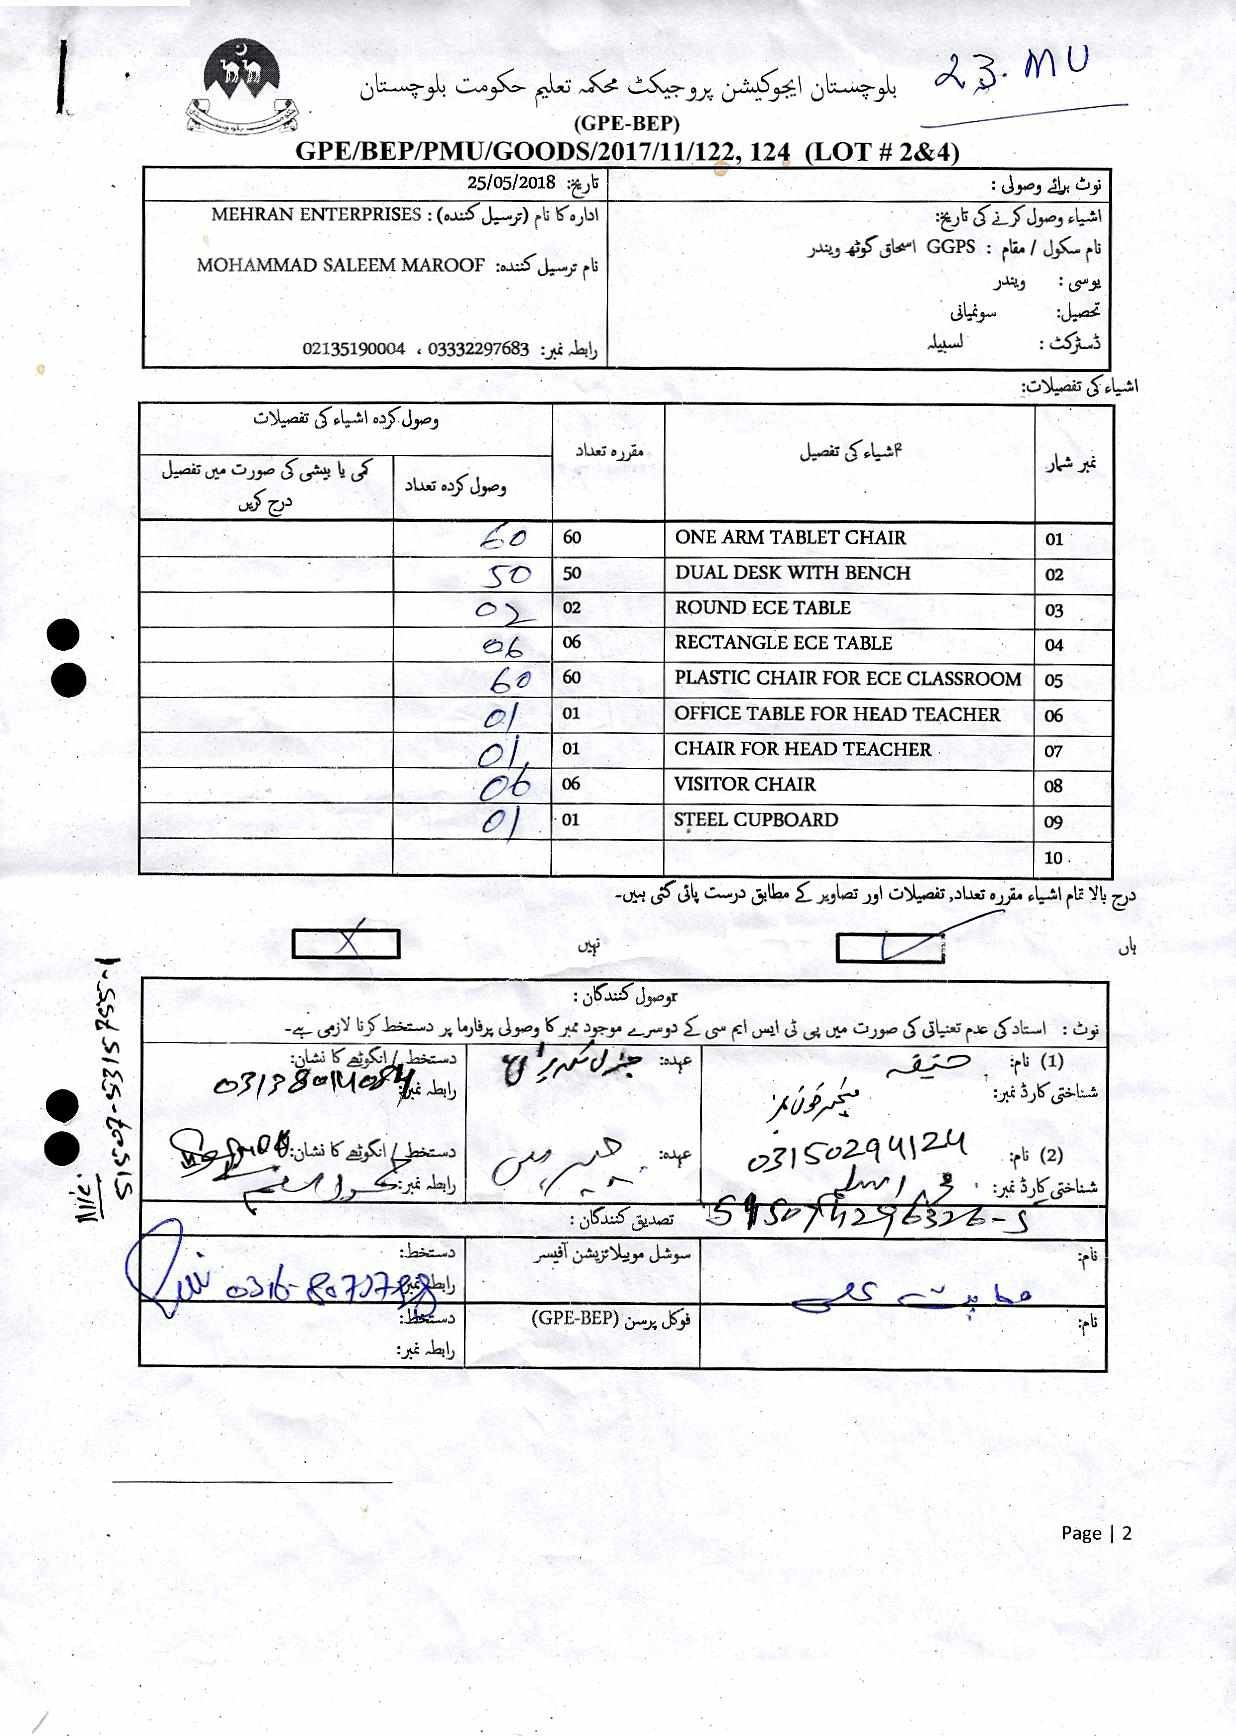 23. MU
بلوچستان ایجوکیشن پروجیکٹ محکمہ تعلیم حکومت بلوچستان
(GPE-BEP)
GPE/BEP/PMU/GOODS/2017/11/122, 124 (LOT # 2&4)
نوٹ برائے وصولی :
تاریخ: 25/05/2018
اشیاء وصول کرنے کی تاریخ:
نام سکول / مقام : GGPS اسحاق گوٹھ ویندر
یوسی : ویندر
تحصیل: سونمیانی
ڈسٹرکٹ : لسبیلہ
ادارہ کا نام (ترسیل کنندہ) : MEHRAN ENTERPRISES
نام ترسیل کنندہ: MOHAMMAD SALEEM MAROOF
رابطہ نمبر: 03332297683 ، 02135190004
اشیاء کی تفصیلات:
نمبر شمار اشیاء کی تفصیل مقررہ تعداد وصول کردہ اشیاء کی تفصیلات
وصول کردہ تعداد کمی یا بیشی کی صورت میں تفصیل درج کریں
01 ONE ARM TABLET CHAIR 60 60
02 DUAL DESK WITH BENCH 50 50
03 ROUND ECE TABLE 02 02
04 RECTANGLE ECE TABLE 06 06
05 PLASTIC CHAIR FOR ECE CLASSROOM 60 60
06 OFFICE TABLE FOR HEAD TEACHER 01 01
07 CHAIR FOR HEAD TEACHER 01 01
08 VISITOR CHAIR 06 06
09 STEEL CUPBOARD 01 01
10
درج بالا تمام اشیاء مقررہ تعداد, تفصیلات اور تصاویر کے مطابق درست پائی گئی ہیں۔
ہاں نہیں
وصول کنندگان :
نوٹ : استاد کی عدم تعنیاتی کی صورت میں پی ٹی ایس ایم سی کے دوسرے موجود ممبر کا وصولی پرفارما پر دستخط کرنا لازمی ہے۔
(1) نام: عہدہ: دستخط / انگوٹھے کا نشان:
شناختی کارڈ نمبر: رابطہ نمبر:
(2) نام: 03150294124 عہدہ: دستخط / انگوٹھے کا نشان:
شناختی کارڈ نمبر: رابطہ نمبر:
تصدیق کنندگان :
نام: سوشل موبیلائزیشن آفیسر دستخط:
رابطہ نمبر:
نام: فوکل پرسن (GPE-BEP) دستخط:
رابطہ نمبر:
Page | 2